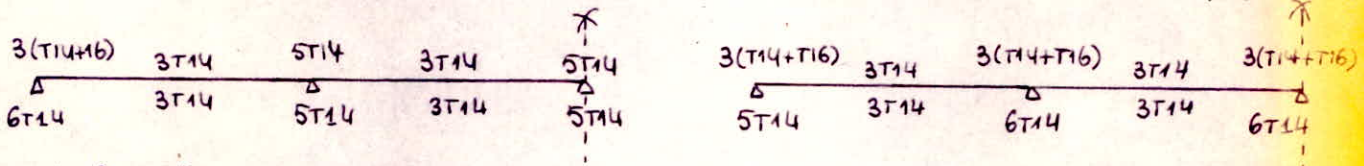 3(T14+16) 3T14 5T14 3T14 5T14
6T14 3T14 5T14 3T14 5T14
3(T14+T16) 3T14 3(T14+T16) 3T14 3(T14+T16)
5T14 3T14 6T14 3T14 6T14